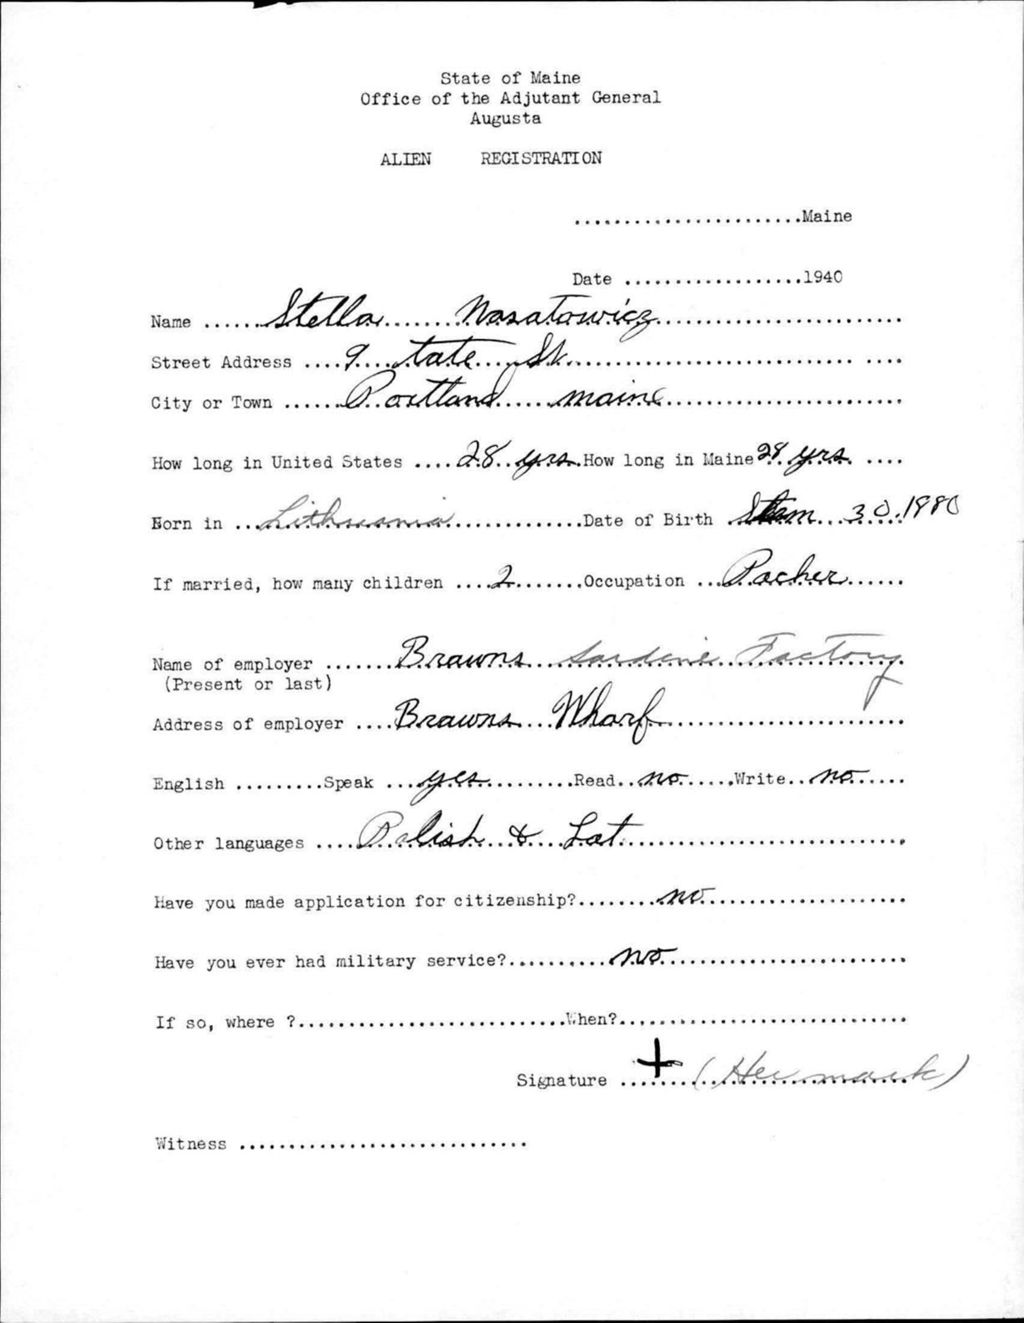 State of Maine
Office of the Adjutant General
Augusta
ALIEN REGISTRATION
.......................Maine
Date ..................1940
Name ......Stella.......Nasatowicz.........................
Street Address ....9....tate....St..................................
City or Town ......Portland......maine........................
How long in United States ....28..yrs..How long in Maine 28 yrs. ....
Born in ...Lithuania..............Date of Birth ... 30.1880
If married, how many children ....2.......Occupation ...Packer......
Name of employer .......Brawns...Sardine Factory.
(Present or last)
Address of employer ....Brawns...Wharf........................
English .........Speak ...yes.........Read..no.....Write..no.....
Other languages ....Polish...&...Lat............................
Have you made application for citizenship?........no....................
Have you ever had military service?..........no.........................
If so, where ?...........................When?.............................
Signature ....+...(Her mark)
Witness .............................